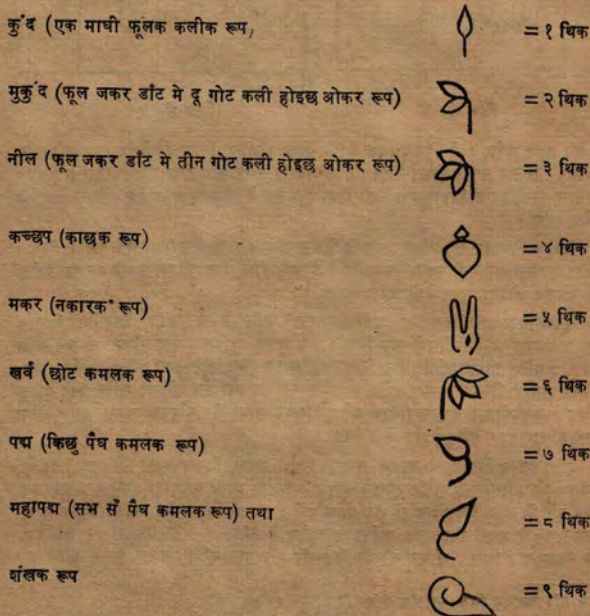 कुंद (एक माघी फूलक कलीक रूप, = १ थिक
मुकुंद (फूल जकर डाँट मे दू गोट कली होइछ ओकर रूप) = २ थिक
नील (फूल जकर डाँट मे तीन गोट कली होइछ ओकर रूप) = ३ थिक
कच्छप (काछक रूप) = ४ थिक
मकर (नकारक* रूप) = ५ थिक
खर्व (छोट कमलक रूप) = ६ थिक
पद्म (किछु पैघ कमलक रूप) = ७ थिक
महापद्म (सभ सँ पैघ कमलक रूप) तथा = ८ थिक
शंखक रूप = ९ थिक